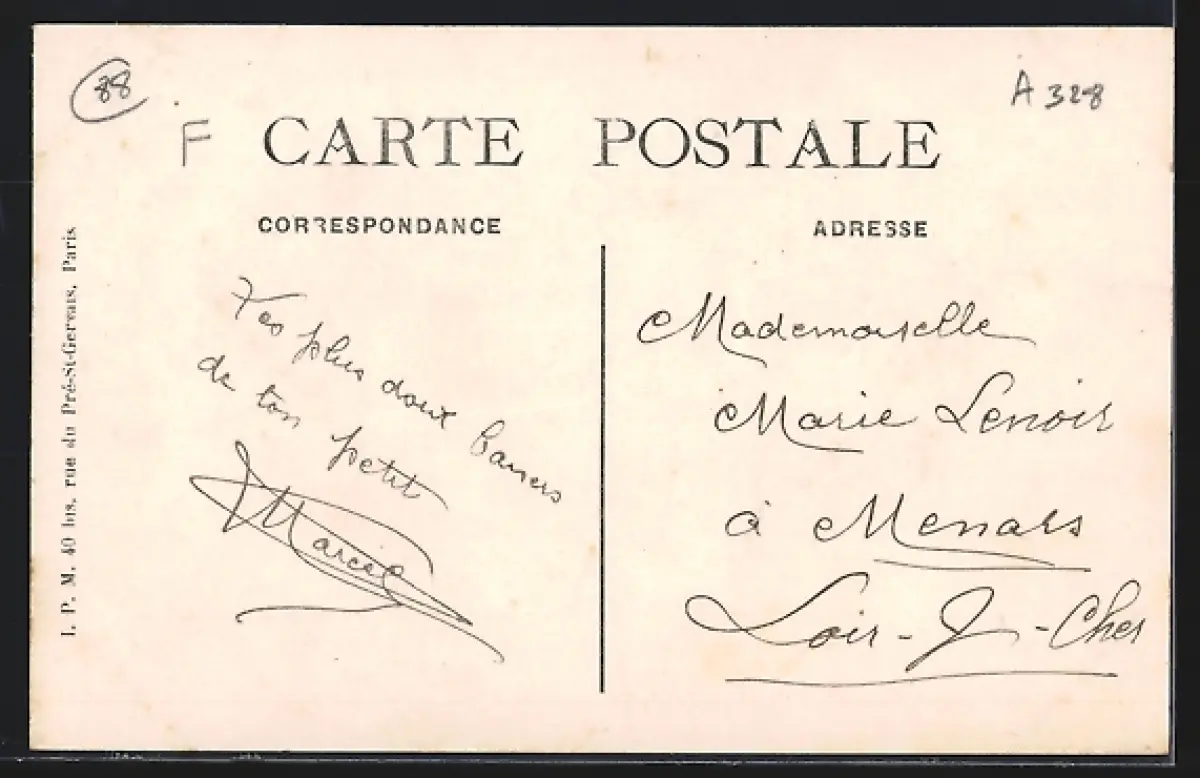 88
A 328
F
CARTE POSTALE
CORRESPONDANCE
ADRESSE
I. P. M. 40 bis, rue du Pré-St-Gervais, Paris
plus doux baisers
de ton petit
Marcel
Mademoiselle
Marie Lenoir
à Menars
Loir-&-Cher